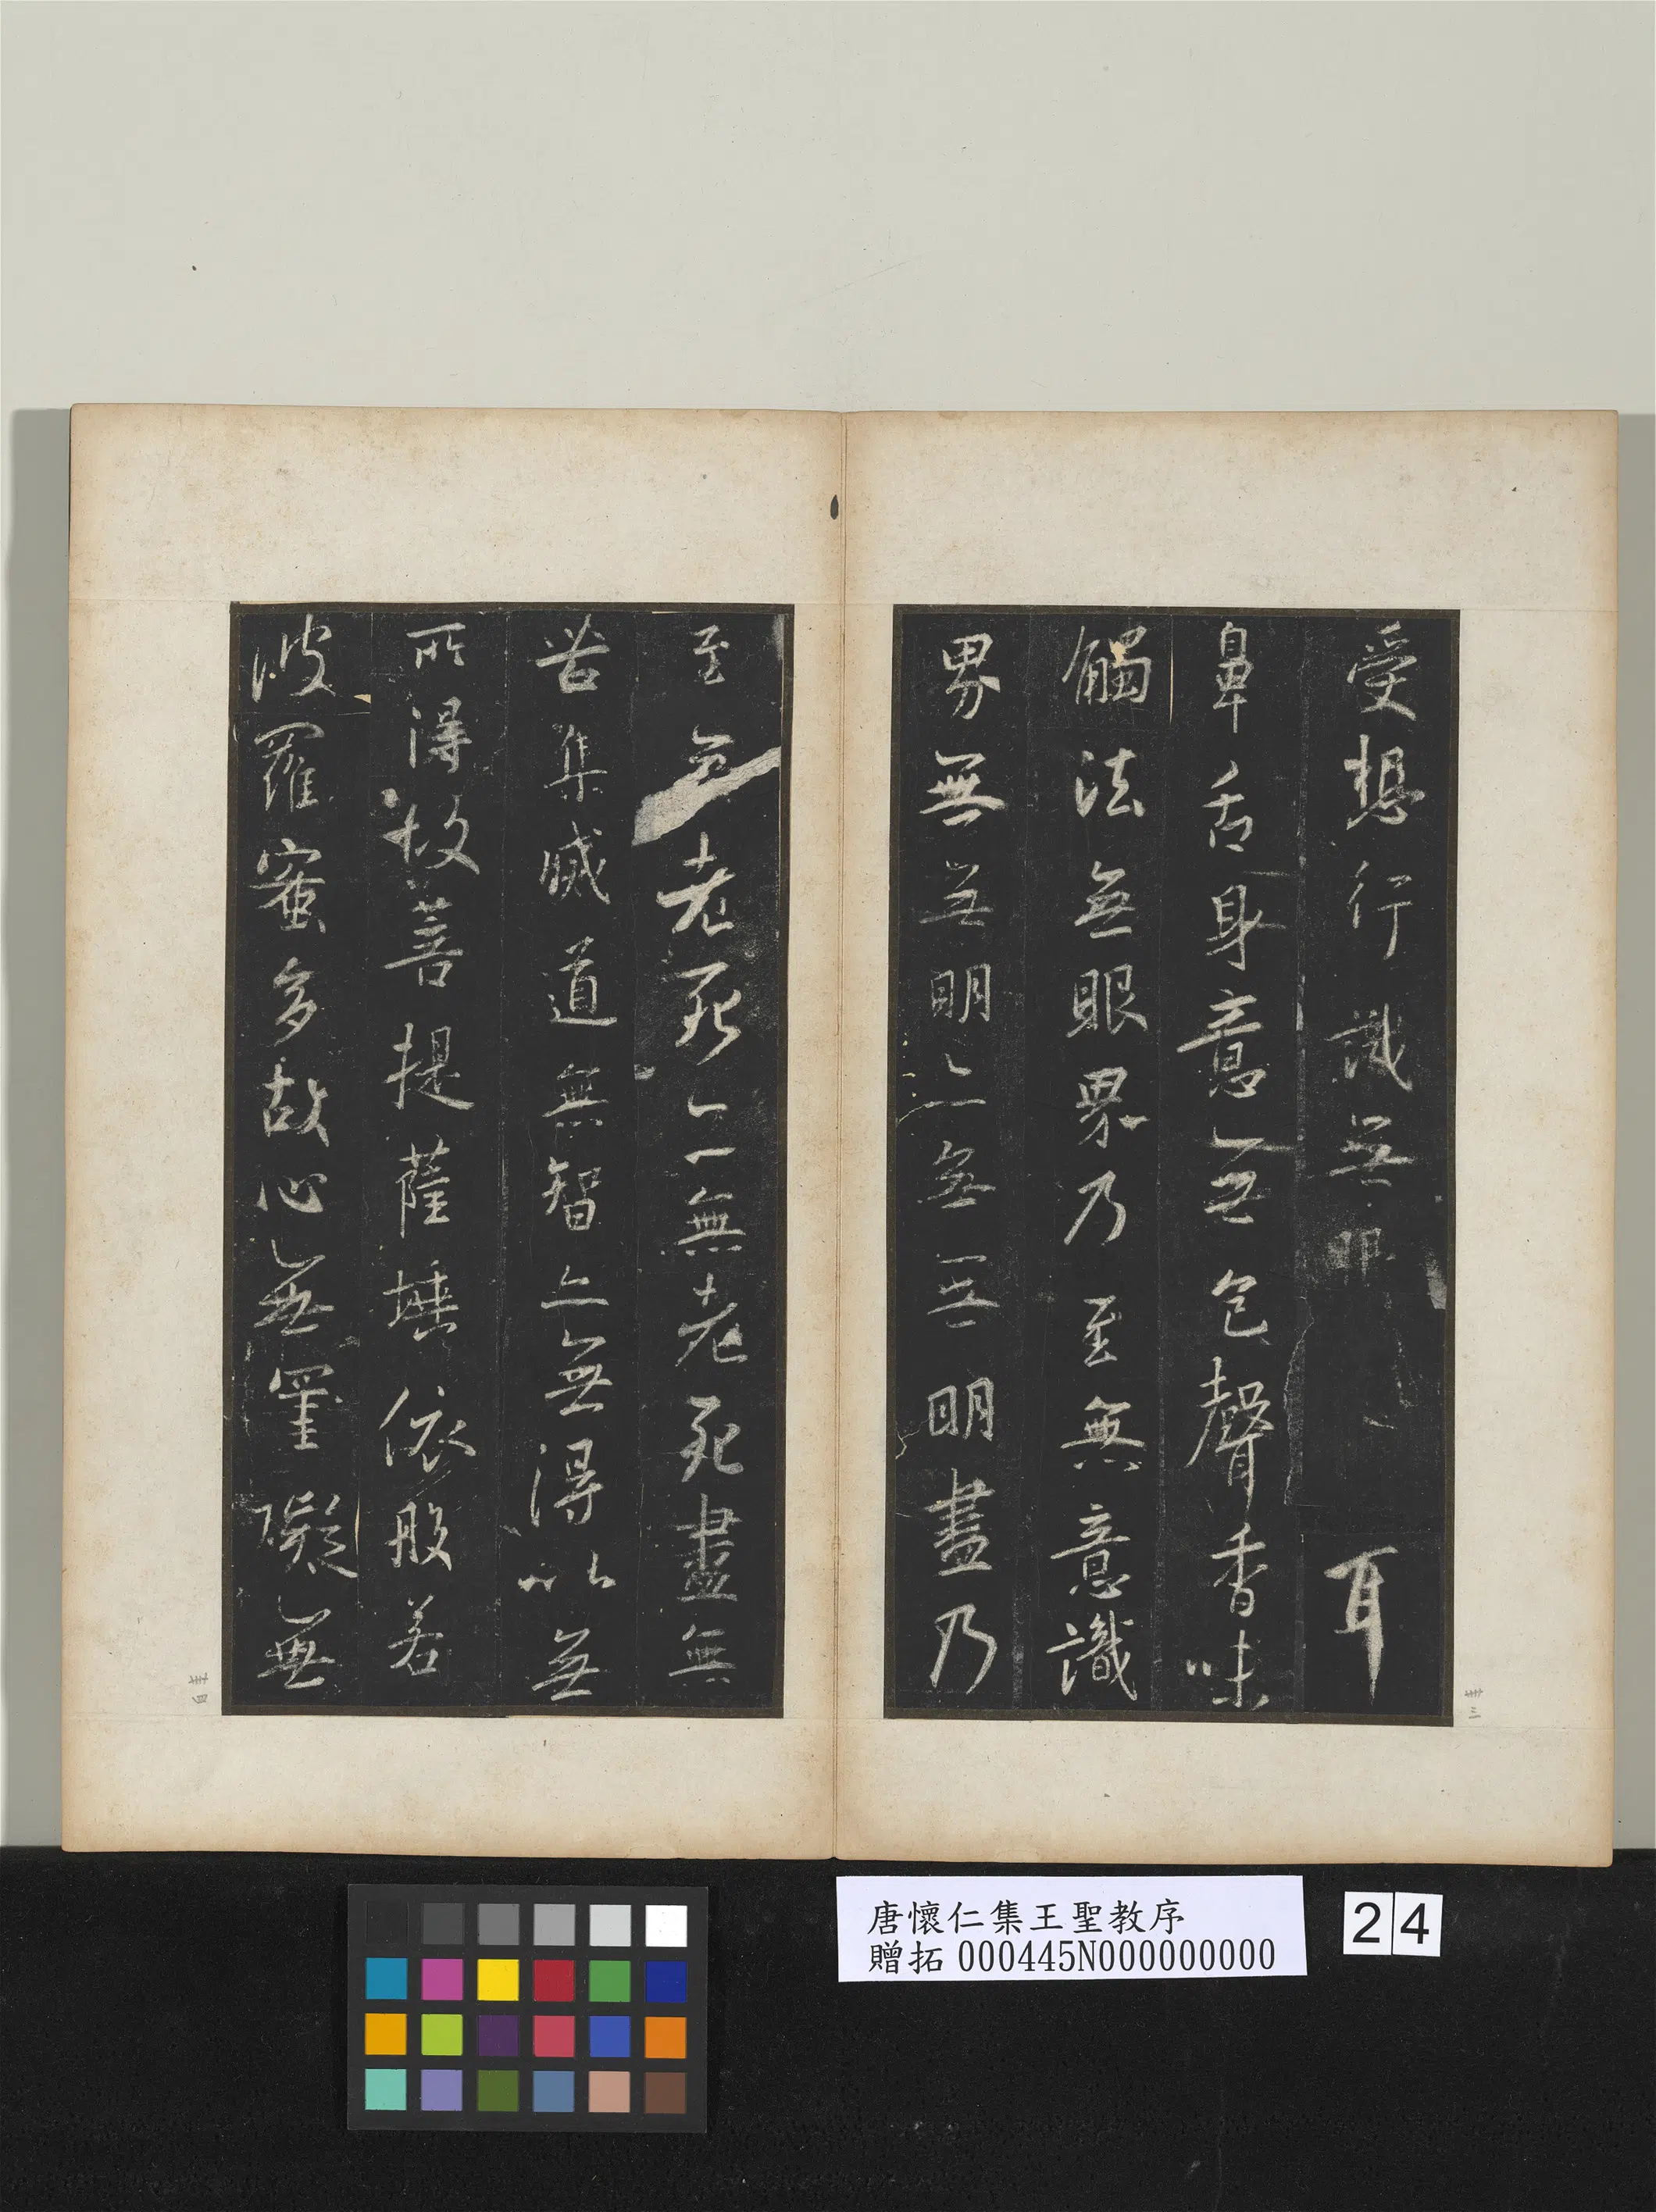 受想行識無眼耳
鼻舌身意無色聲香味
觸法無眼界乃至無意識
界無無明亦無無明盡乃
至無老死亦無老死盡無
苦集滅道無智亦無得以無
所得故菩提薩埵依般若
波羅蜜多故心無罣礙無
唐懷仁集王聖教序
贈拓 000445N000000000
24